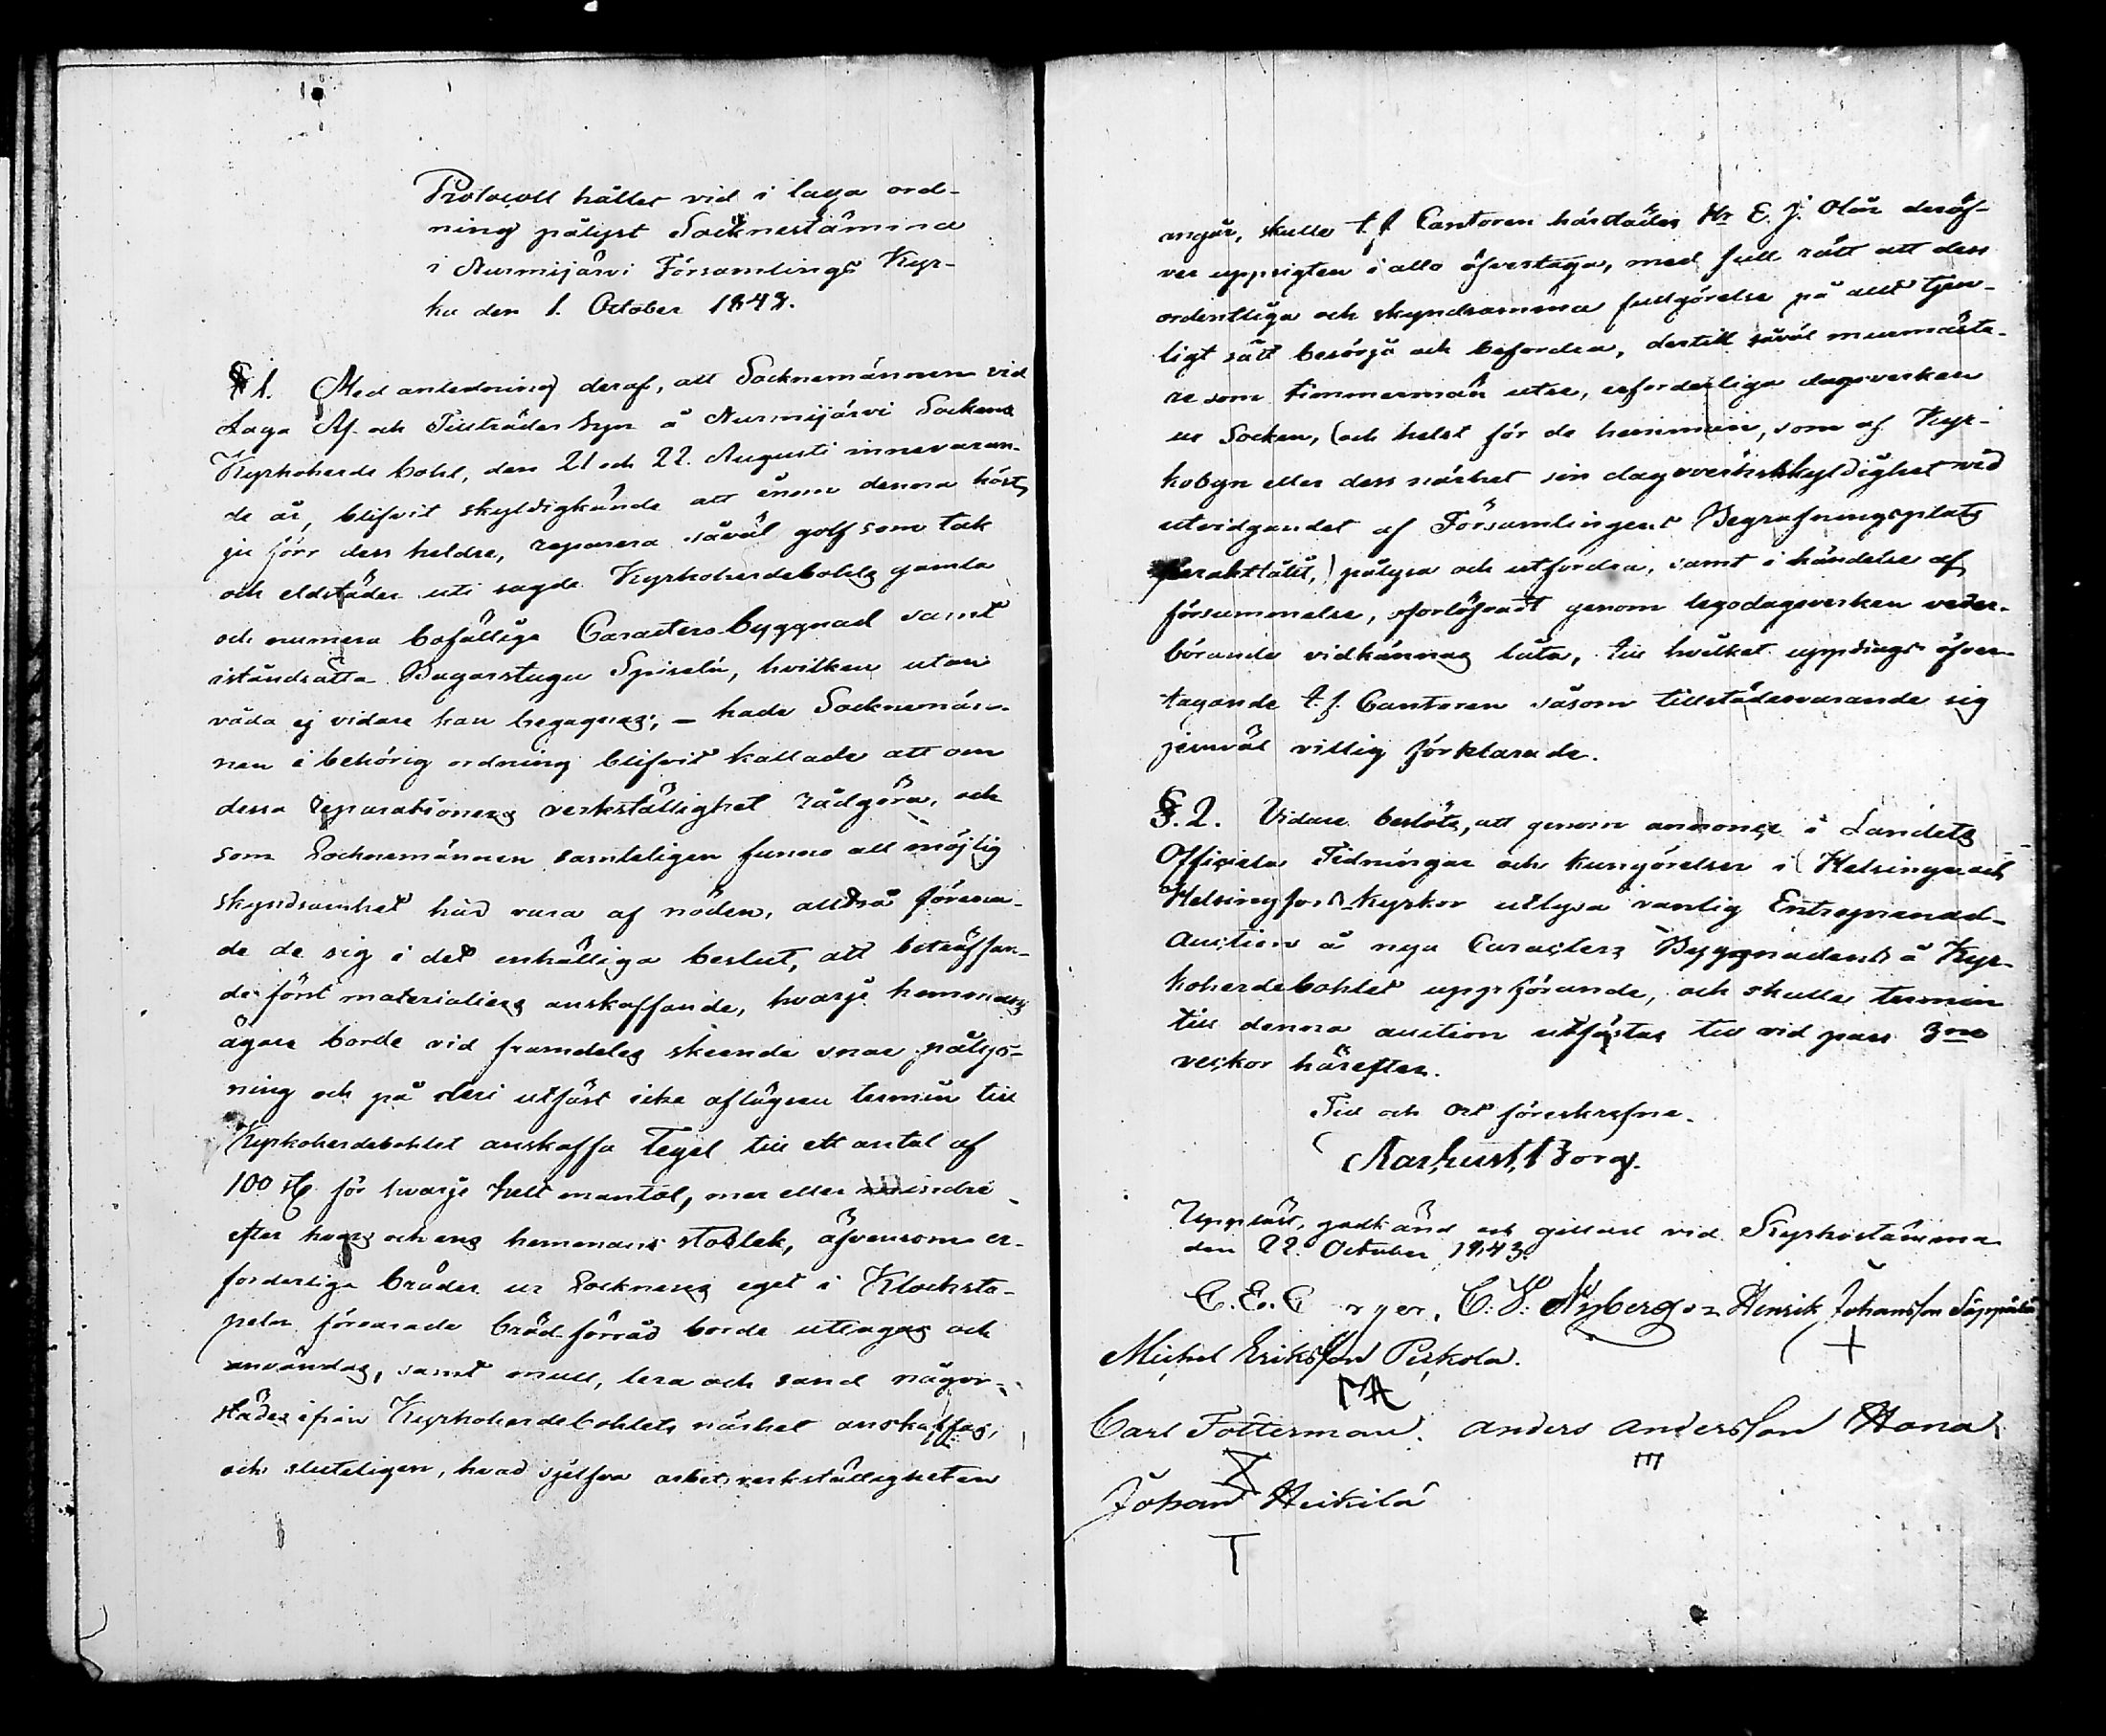 Protocoll hållet vid i laga ord-
ning pålyst Socknestämma
i Nurmijärvi Församlings Kyr-
ka den 1. October 1843.
§ 1. Med anledning deraf, att Socknemännen vid
Laga Af- och Tillträdes Syn å Nurmijärvi Sockens
Kyrkoherde bohl, den 21 och 22. Augusti innevaran-
de år, blifvit skyldigkände att innom denna höst,
ju förr dess heldre, reparera såväl golf som tak
och eldstäder uti sagde Kyrkoherdebohls gamla
och numera bofällige Caracters byggnad samt
iståndsätta Bagarstugu Spiseln, hvilken utan
våda ej vidare kan begagnas; – hade Socknemän-
nen i behörig ordning blifvit kallade att om
dessa reparationers verkställighet rådgöra, och
som Socknemännen samteligen funno all möjlig
skyndsamhet härvid vara af nöden, alltså förena-
de de sig i det enhälliga beslut, att beträffan-
de först materialiers anskaffande, hvarje hemmans
ägare borde vid framdeles skeende snar pålys-
ning och på deri utfäst icke aflägsen termin till
Kyrkoherdebohlet anskaffa Tegel till ett antal af
100 st. för hvarje helt mantal, mer eller mindre
efter hvars och ens hemmans storlek, äfvensom er-
forderliga bräder ur Socknens eget i Klocksta-
peln förvarade brädförråd borde uttagas och
användas, samt mull, lera och sand någor-
städes ifrån Kyrkoherdebohlets närhet anskaffas,
och sluteligen, hvad sjelfva arbetsverkställigheten
angår, skulle t.f. Cantoren härstädes Hr E. J. Olin deröf-
ver uppsigten i allo öfvertaga, med full rätt att dess
ordentliga och skyndsamma fullgörelse på allt tjen-
ligt sätt besörja och befordra, dertill såväl murmästa-
re som timmermän utse, erforderliga dagsverken
ur Socken, (och helst för de hemman, som af Kyr-
kobyn eller dess närhet sin dagsverksskyldighet vid
utvidgandet af Församlingens Begrafningsplats
) pålysa och utfordra, samt i händelse af
försummelse, oförtöfvadt genom legodagsverken veder-
börande vidkännas låta, till hvilket uppdrags öfver-
tagande t.f. Cantoren såsom tillstädesvarande sig
jemväl villig förklarade.
§. 2. Vidare beslöts, att genom annonce i Landets
Officiela Tidningar och kungörelser i Helsinge och
Helsingfors Kyrkor utlysa vanlig Entreprenad-
Auction å nya Caracters Byggnadens å Kyr-
koherdebohlet uppförande, och skulle termin
till denna auction utfästas till vid pass 3ne
veckor härefter.
Tid och Ort föreskrefne.
August Borg.
Uppläst, godkänd och gillad vid Kyrkostämma
den 22 October 1843.
C. E. C C. W. Nyberg Henrik Johansson Seppälä
Michel Eriksson Perkola.
Carl Fotterman. Anders Andersson Hana
Johan Heikilä